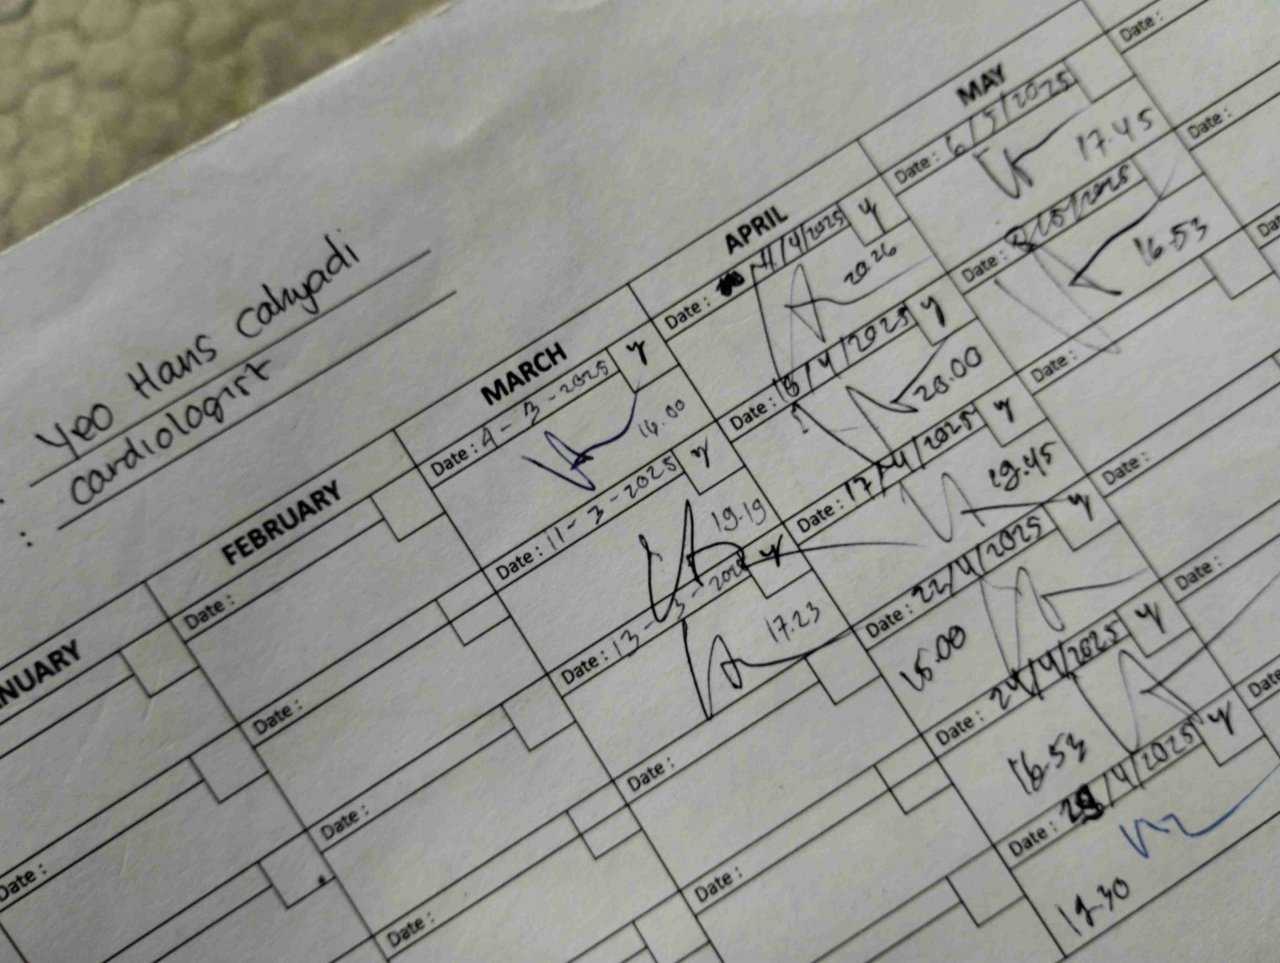 : Yeo Hans Cahyadi
: Cardiologist
NUARY
Date :
FEBRUARY
Date :
Date :
Date :
Date :
MARCH
Date : 4-3-2025 y
16.00
Date : 11-3-2025 y
19.19
Date : 13-3-202 y
17.23
Date :
Date :
APRIL
Date : 11/4/2025 y
20.26
Date : /4/2025 y
20.00
Date : 17/4/2025 y
19.45
Date : 22/4/2025 y
15.00
Date : 24/4/2025 y
16.53
Date : /4/2025 y
MAY
Date : 6/5/2025
17.45
Date : 8/05/2025
16.53
Date :
Date :
Date :
Date
Date :
Date :
Da